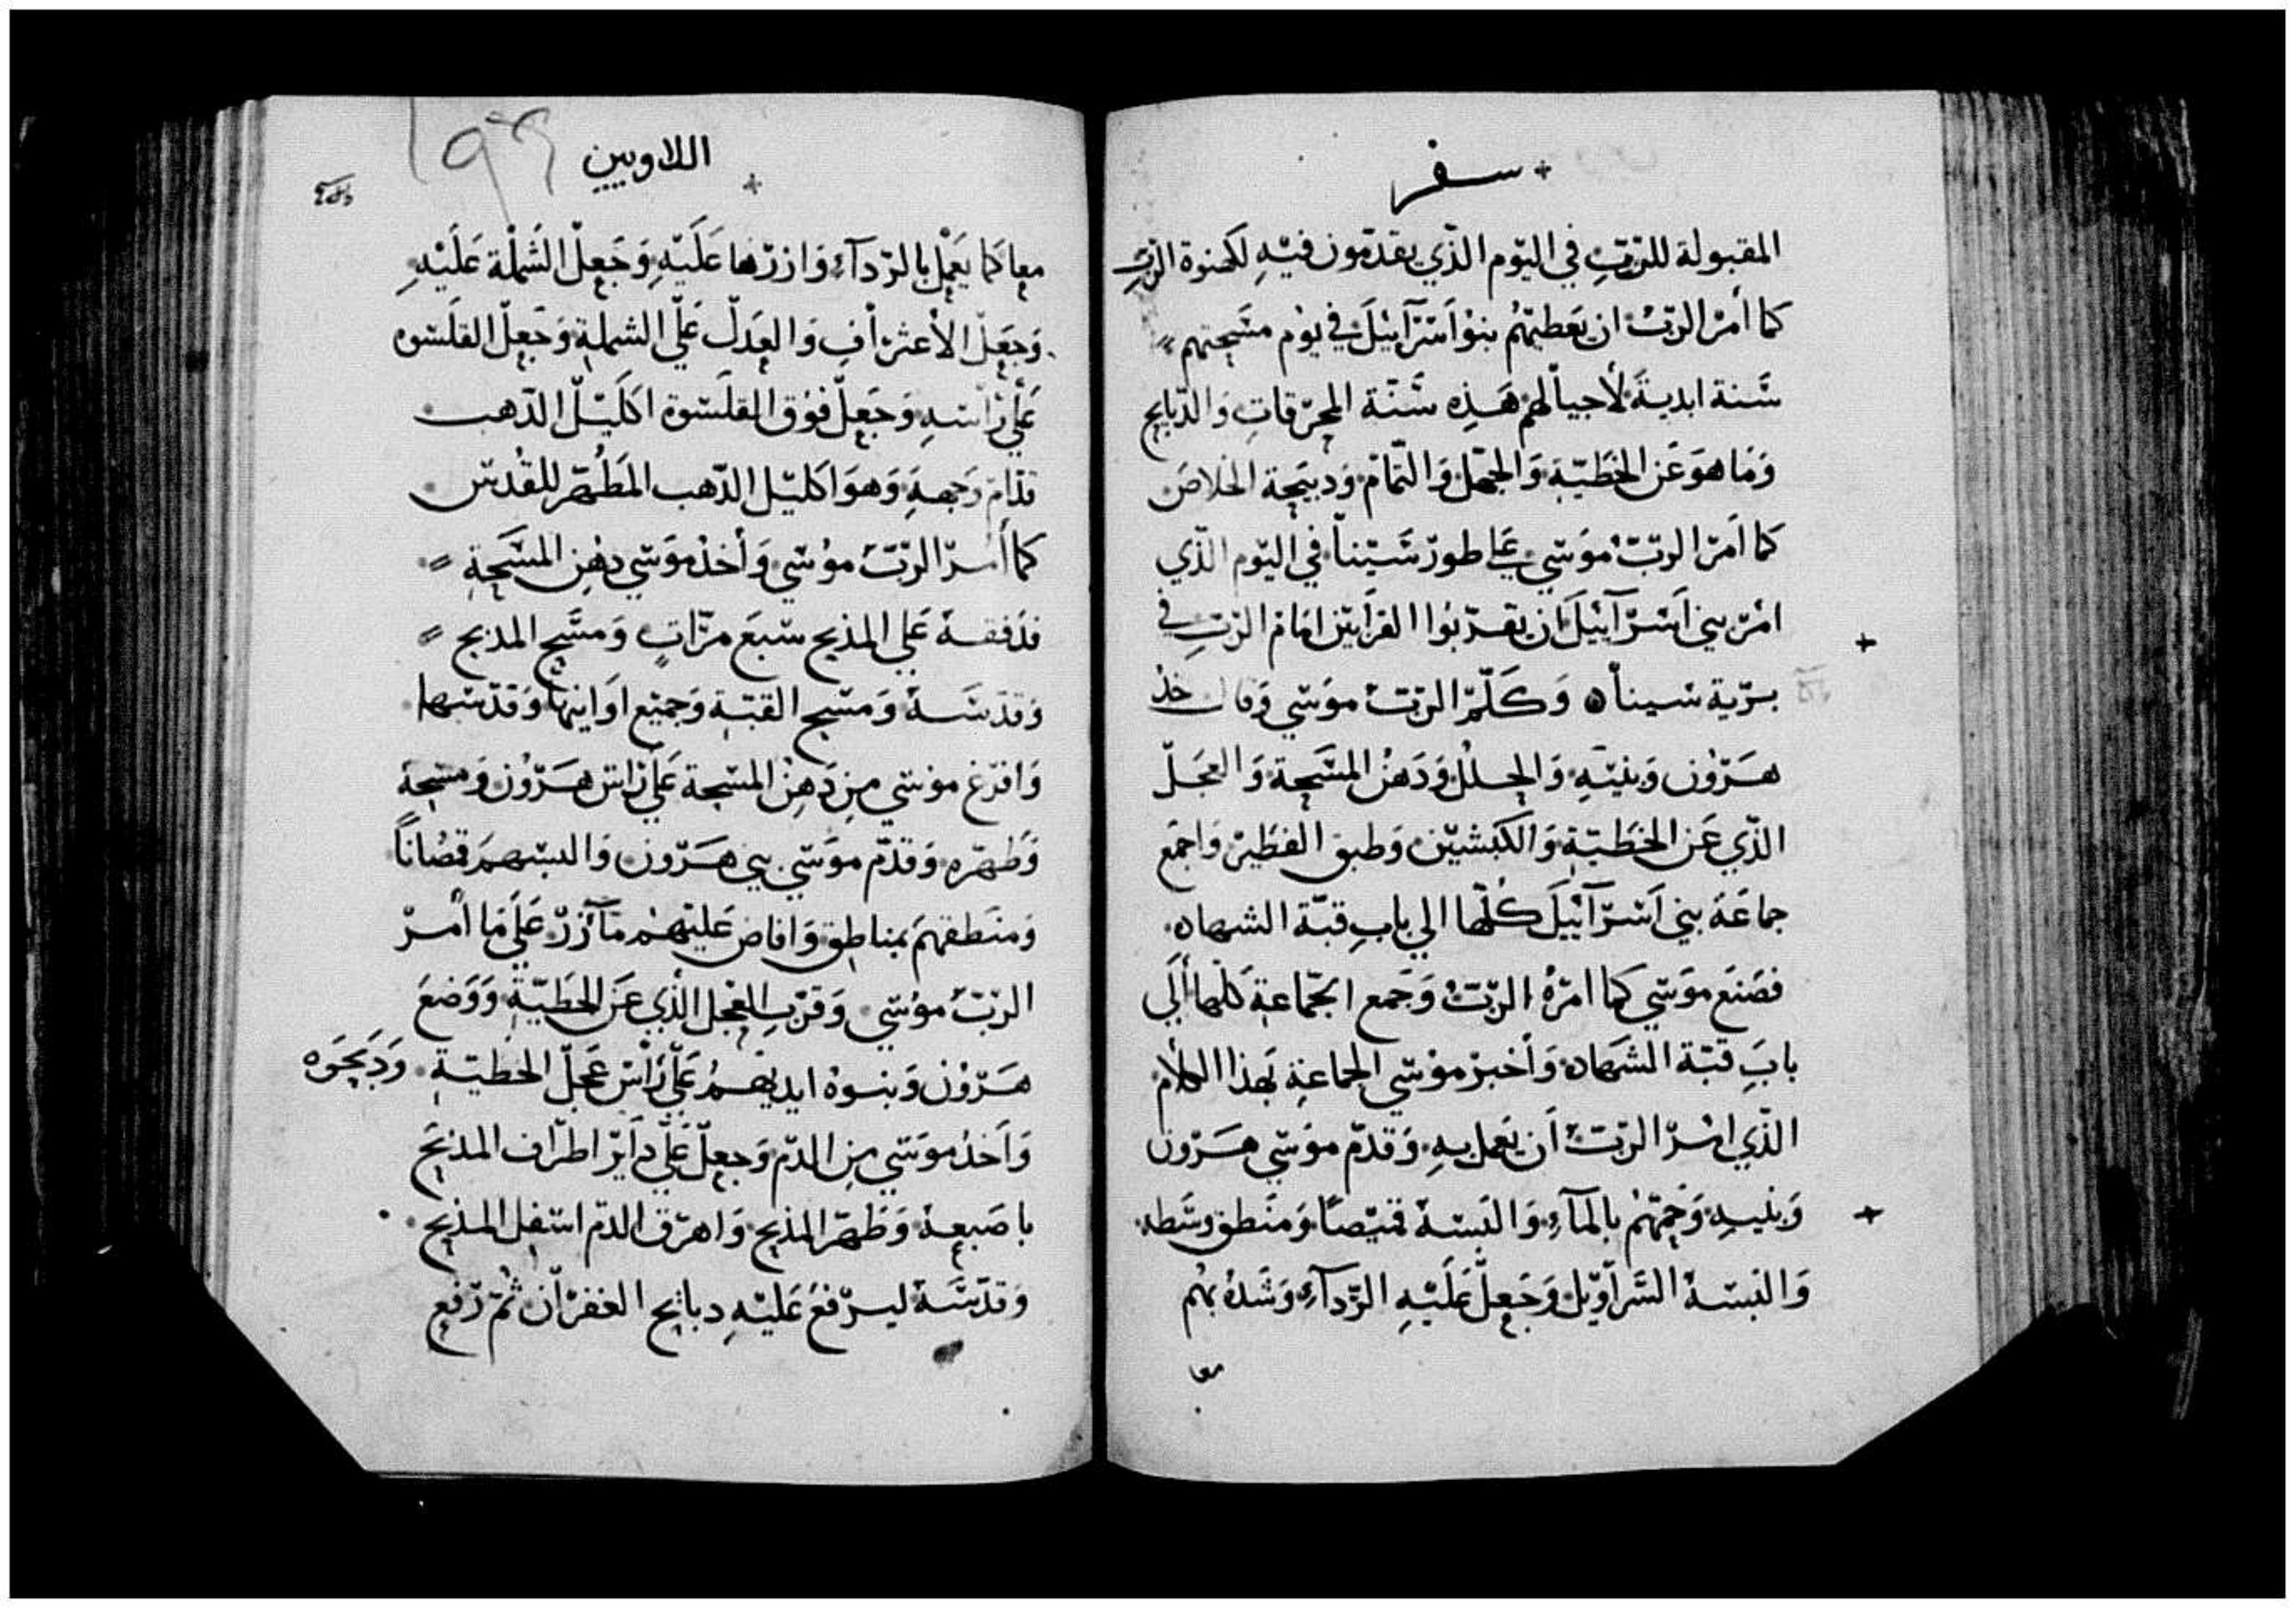 سفر
المقبولة للربّ في اليوم الذي يقدّمون فيه لكهنوة الربّ
كما أمر الربّ ان يعطيهم بنو اسرآييل في يوم مسحتهم
سنة ابدية لأجيالهم هذه سنّة المحرقات والدبايح
وما هو عن الخطيّة والجهل والتمام ودبيحة الخلاص
كما امر الربّ موسي علي طور سينا في اليوم الذي
امر بني اسرآييل ان يقربوا القرابين امام الربّ في
برّية سينا وكلّم الربّ موسي وقال خذ
هرون وبنيه والحلل ودهن المسحة والعجل
الذي عن الخطيّة والكبشين وطبق الفطير واجمع
جماعة بني اسرآييل كلّها الي باب قبّة الشهاده
فصنع موسي كما امره الربّ وجمع الجماعة كلها الي
باب قبّة الشهاده وأخبر موسي الجماعة بهذا الكلام
الذي امر الربّ أن يعمل به وقدّم موسي هرون
وبنيه وحمّهم بالمآء والبسه قميصًا ومنطق وسطه
والبسه السراويل وجعل عليه الردآء وشده بهم
معا
اللاويين
معا كما يعمل بالردآء وازرّها عليه وجعل الشملة عليه
وجعل الأعتراف والعدل علي الشملة وجعل القلسوه
علي راسه وجعل فوق القلسوة اكليل الدهب
قدّام وجهه وهو اكليل الدهب المطهّر للقدس
كما أمر الربّ موسي وأخذ موسي دهن المسحة
فدفقه علي المذبح سبع مرّات ومسح المدبح
وقدّسه ومسح القبّة وجميع اوانيها وقدّسها
وافرغ موسي من دهن المسحة علي راس هرون ومسحه
وطهّره وقدّم موسي بني هرون والبسهم قصانًا
ومنطقهم بمناطق وافاض عليهم مآزر علي ما أمر
الربّ موسي وقرّب العجل الذي عن الخطيّة ووضع
هرون وبنوه ايديهم علي راس عجل الخطيّة ودبحوه
وأخذ موسي من الدم وجعل علي داير اطراف المذبح
باصبعه وطهّر المذبح واهرق الدم اسفل المذبح
وقدّسه ليرفع عليه دبايح الغفران ثم رفع